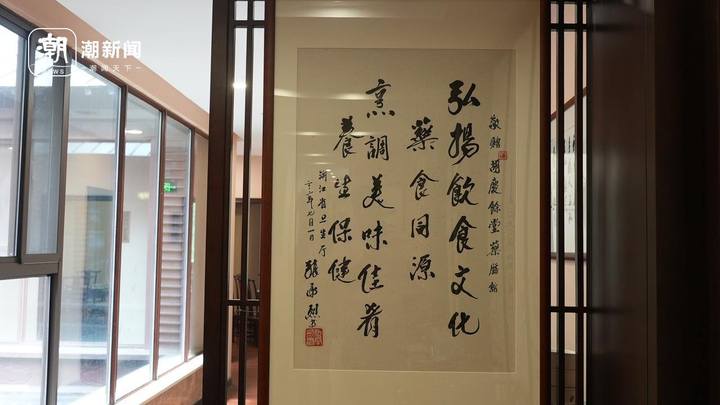 潮
NEWS
潮新闻
潮闻天下
敬贈胡慶餘堂藥膳館
弘揚飲食文化
藥食同源
烹調美味佳肴
養生保健
浙江省卫生厅
年九月一日
張承烈书